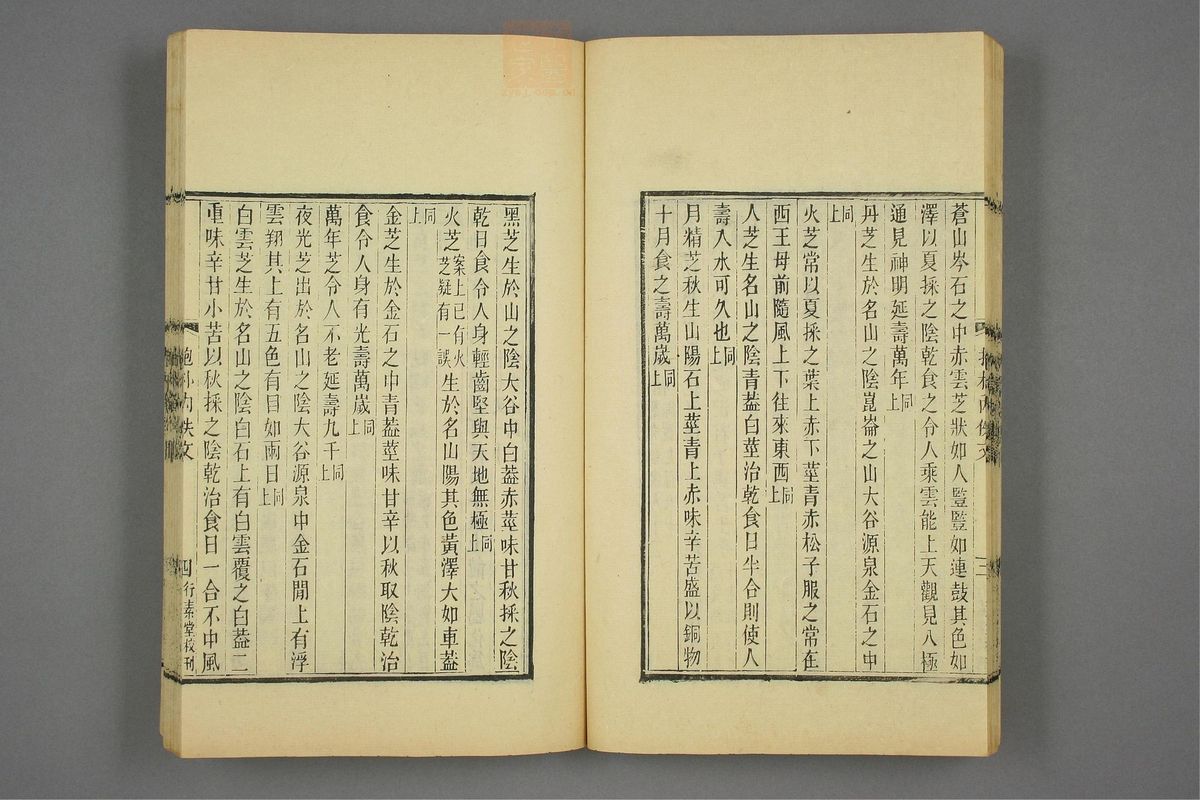 蒼山岑石之中赤雲芝狀如人豎豎如連鼓其色如
澤以夏採之陰乾食之令人乘雲能上天觀見八極
通見神明延壽萬年同上
丹芝生於名山之陰崑崙之山大谷源泉金石之中
同上
火芝常以夏採之葉上赤下莖青赤松子服之常在
西王母前隨風上下往來東西同上
人芝生名山之陰青葢白莖治乾食日半合則使人
壽入水可久也同上
月精芝秋生山陽石上莖青上赤味辛苦盛以銅物
十月食之壽萬歲同上
三
黑芝生於山之陰大谷中白葢赤莖味甘秋採之陰
乾日食令人身輕齒堅與天地無極同上
火芝案上已有火芝疑有一誤生於名山陽其色黃澤大如車葢
同上
金芝生於金石之中青葢莖味甘辛以秋取陰乾治
食令人身有光壽萬歲同上
萬年芝令人不老延壽九千同上
夜光芝出於名山之陰大谷源泉中金石閒上有浮
雲翔其上有五色有目如兩日同上
白雲芝生於名山之陰白石上有白雲覆之白葢二
重味辛甘小苦以秋採之陰乾治食日一合不中風
抱朴內佚文
四
行素堂校刊